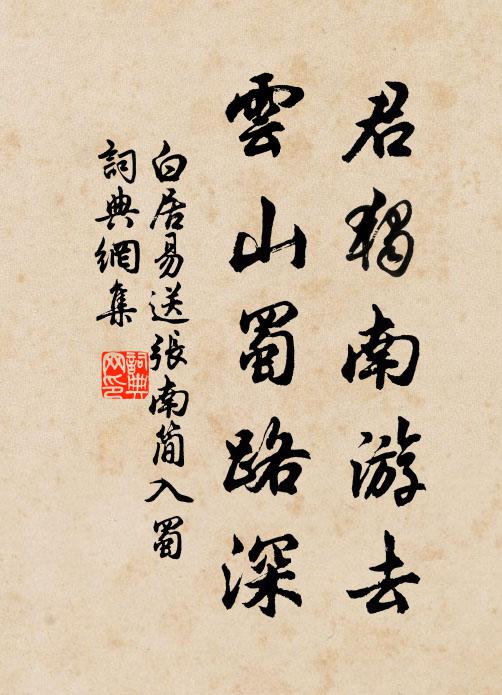 君獨南游去
雲山蜀路深
白居易送張南簡入蜀
詞典網集
詞典
网印